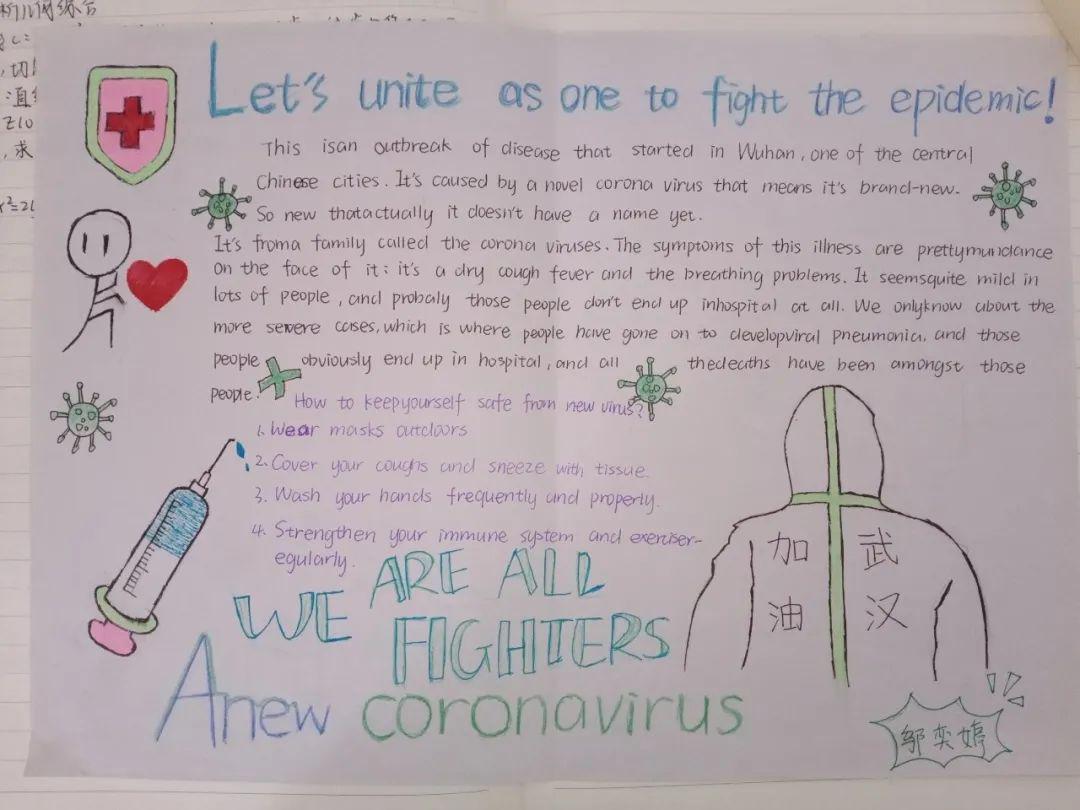 Let's unite as one to fight the epidemic!
This isan outbreak of disease that started in Wuhan, one of the central
Chinese cities. It's caused by a novel corona virus that means it's brand-new.
So new thatactually it doesn't have a name yet.
It's froma family called the corona viruses. The symptoms of this illness are prettymundance
on the face of it: it's a dry cough fever and the breathing problems. It seemsquite mild in
lots of people, and probaly those people don't end up inhospital at all. We onlyknow about the
more severe cases, which is where people have gone on to developviral pneumonia, and those
people obviously end up in hospital, and all thedeaths have been amongst those
people.
How to keepyourself safe from new virus?
1. Wear masks outdoors
2. Cover your coughs and sneeze with tissue.
3. Wash your hands frequently and properly.
4. Strengthen your immune system and exerciser-
egularly.
WE ARE ALL
FIGHTERS
A new coronavirus
武汉
加油
邬奕婷